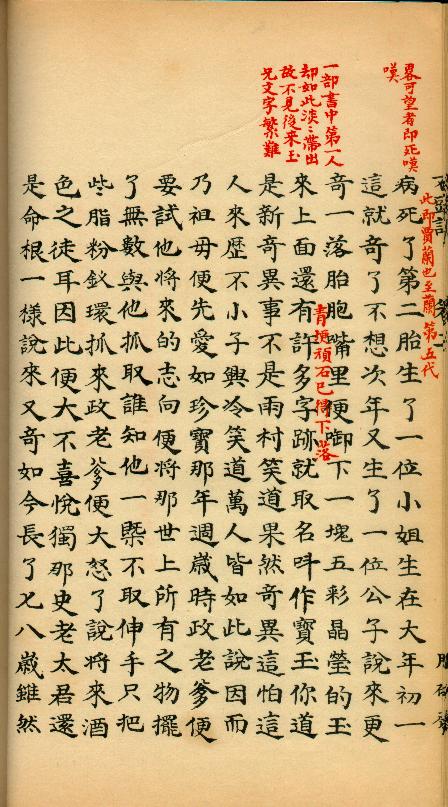 畧可望者即死嘆
嘆
此即賈蘭也至蘭第五代
病死了第二胎生了一位小姐生在大年初一
這就奇了不想次年又生了一位公子說來更
一部書中第一人
却如此淡〻帶出
故不見後來玉
兄文字繁難
青埂頑石已得下落
奇一落胎胞嘴里便啣下一塊五彩晶瑩的玉
來上面還有許多字跡就取名呌作寶玉你道
是新奇異事不是雨村笑道果然奇異這怕這
人來歷不小子興冷笑道萬人皆如此說因而
乃祖母便先愛如珍寶那年週歲時政老爹便
要試他將來的志向便將那世上所有之物擺
了無數與他抓取誰知他一槩不取伸手只把
些脂粉釵環抓來政老爹便大怒了說將來酒
色之徒耳因此便大不喜悅獨那史老太君還
是命根一樣說來又奇如今長了七八歲雖然